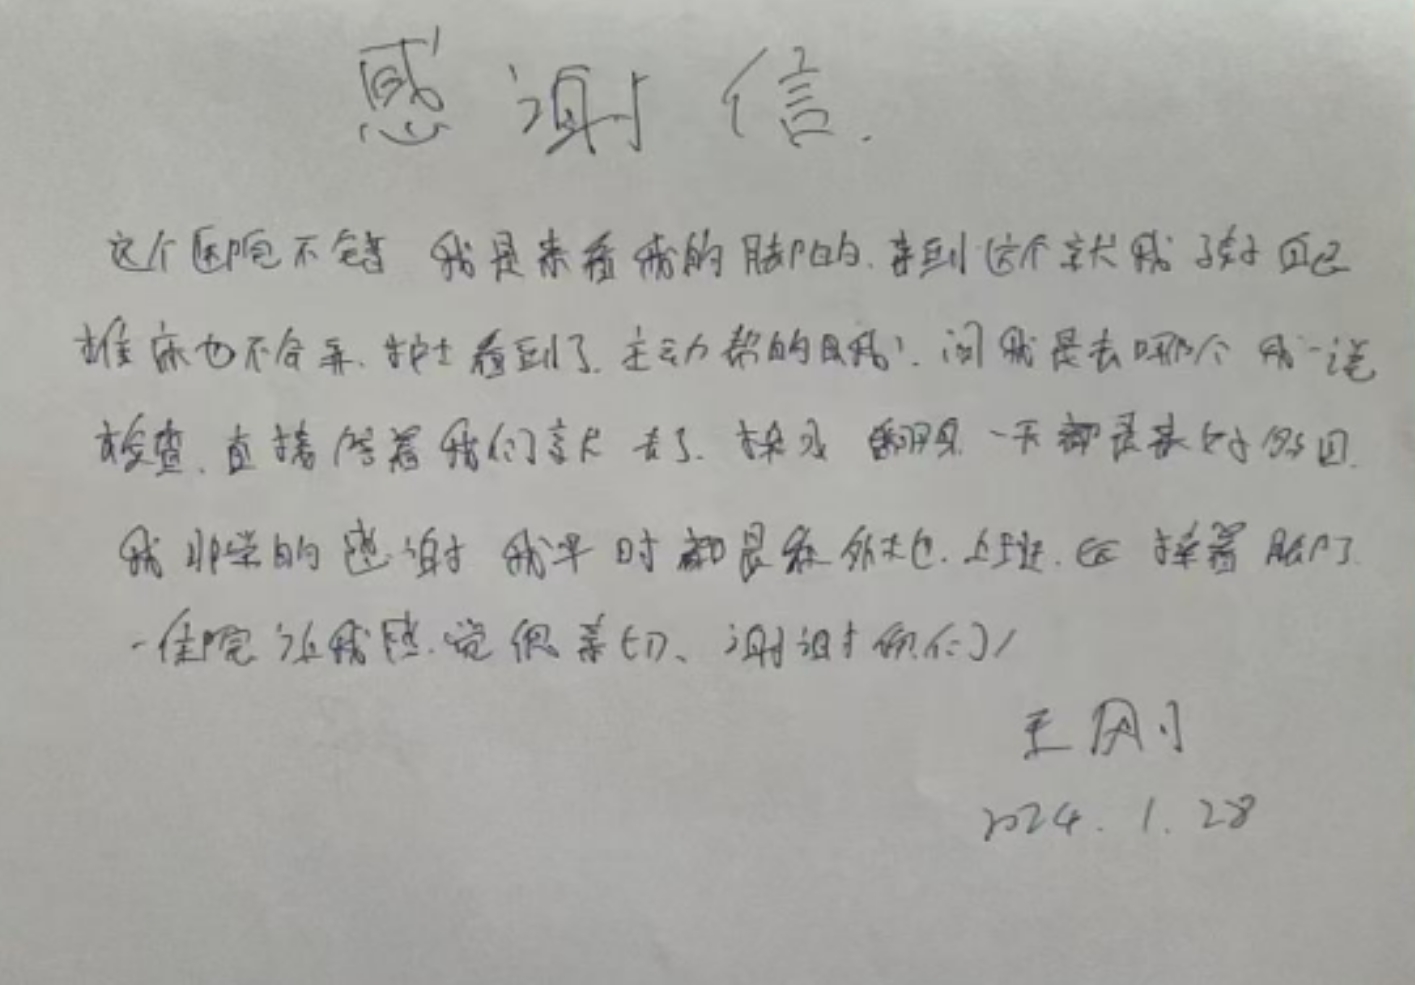 感谢信.
这个医院不错 我是来看我的脚的.来到这个就我 孩子自己
推床也不会弄.护士看到了.主动帮的我.问我是去哪个 我一说
检查.直接 着我们就去了.换 一天都是来好多回.
我非常的感谢 我平时都是在外地.上班. 着脚了.
一住院让我感觉很亲切、谢谢你们!
王刚
2024.1.28